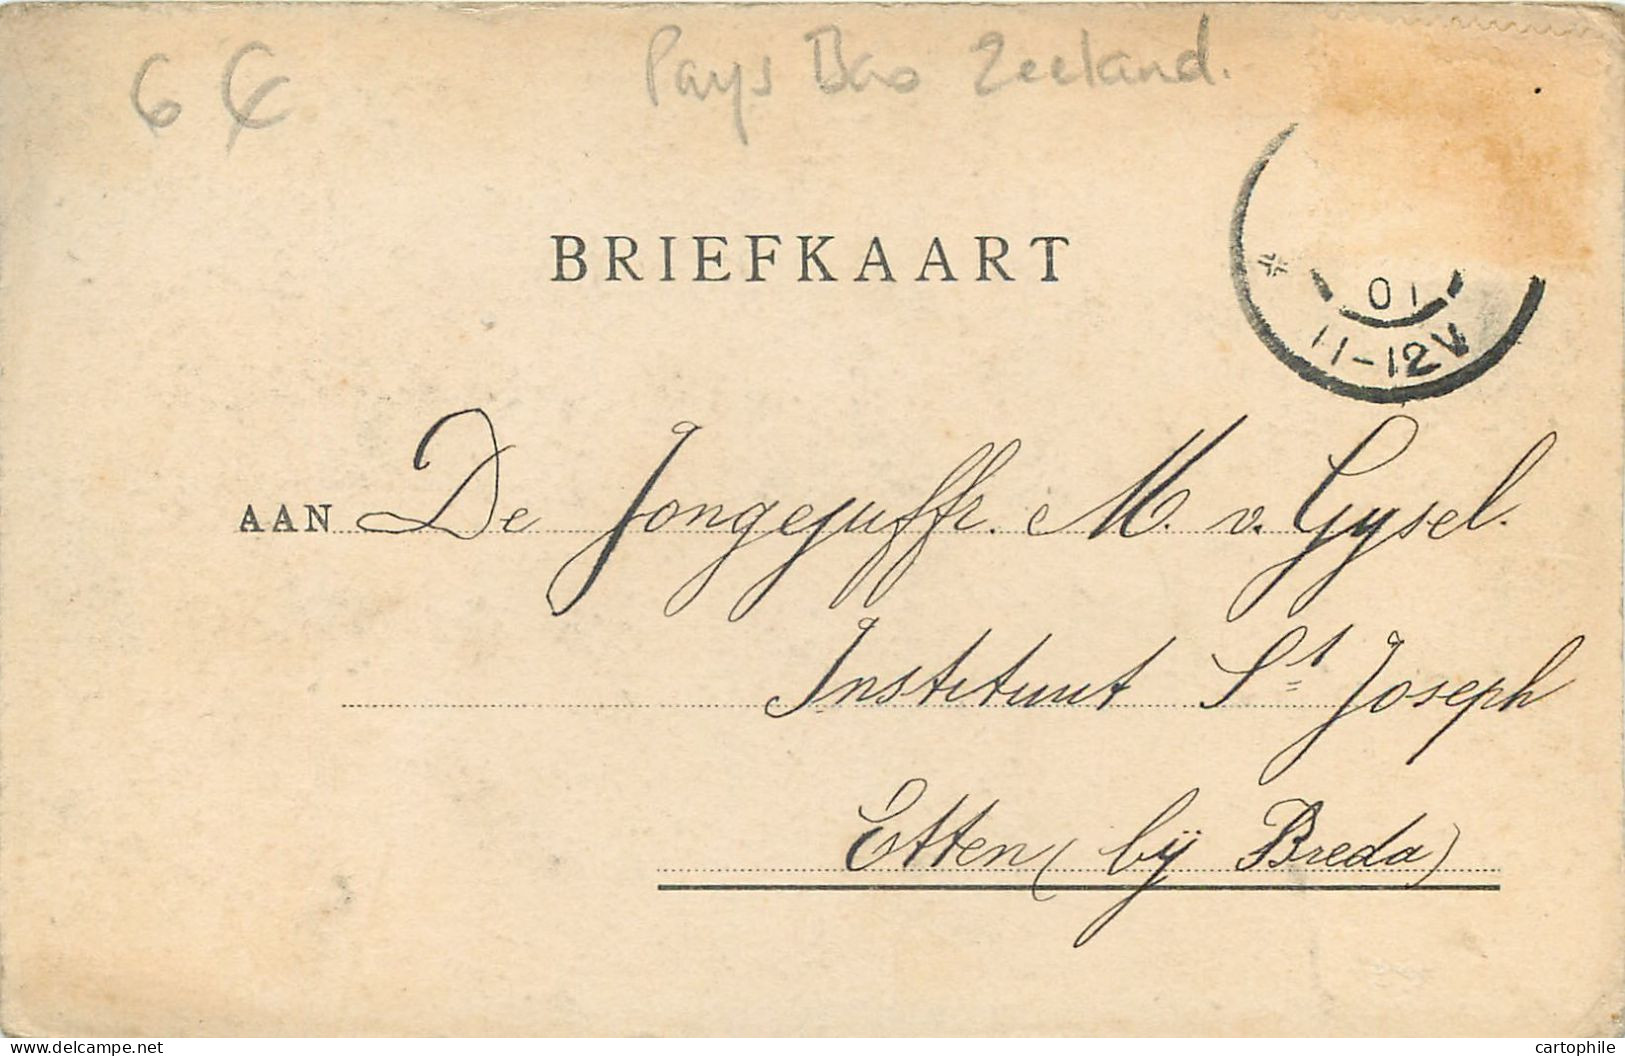 6 €
Pays Bas Zeeland.
BRIEFKAART
01
11-12V
AAN De Jongejuffr. M. v. Gysel.
Instituut St Joseph
Etten (bÿ Breda)
www.delcampe.net
cartophile